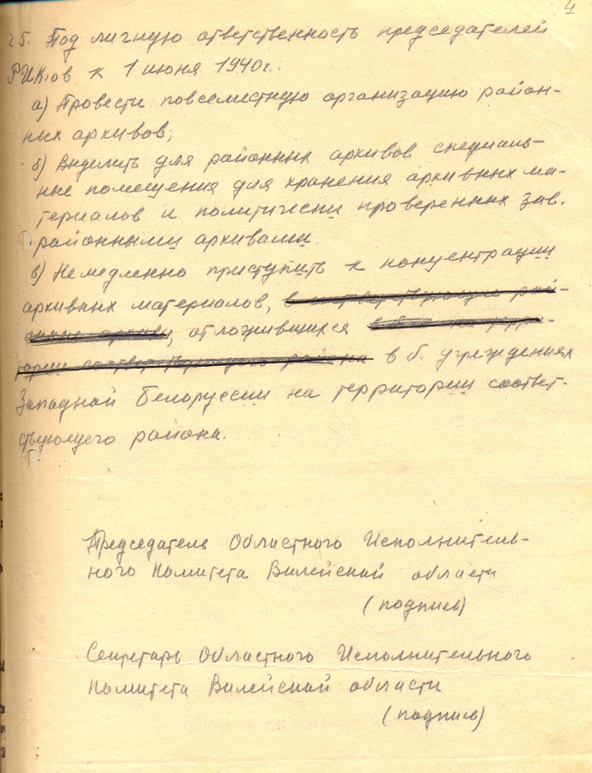 4
25. Под личную ответственность председателей
РИКов к 1 июня 1940г.:
а) Провести повсеместную организацию район-
ных архивов;
б) Выделить для районных архивов специаль-
ные помещения для хранения архивных ма-
териалов и политически проверенных зав.
районными архивами.
в) Немедленно приступить к концентрации
архивных материалов, в соответствующие рай-
онные архивы, отложившихся на терри-
тории соответствующего района в б. учреждениях
Западной Белоруссии на территории соответ-
ствующего района.
Председатель Областного Исполнитель-
ного Комитета Вилейской области
(подпись)
Секретарь Областного Исполнительного
Комитета Вилейской области
(подпись)